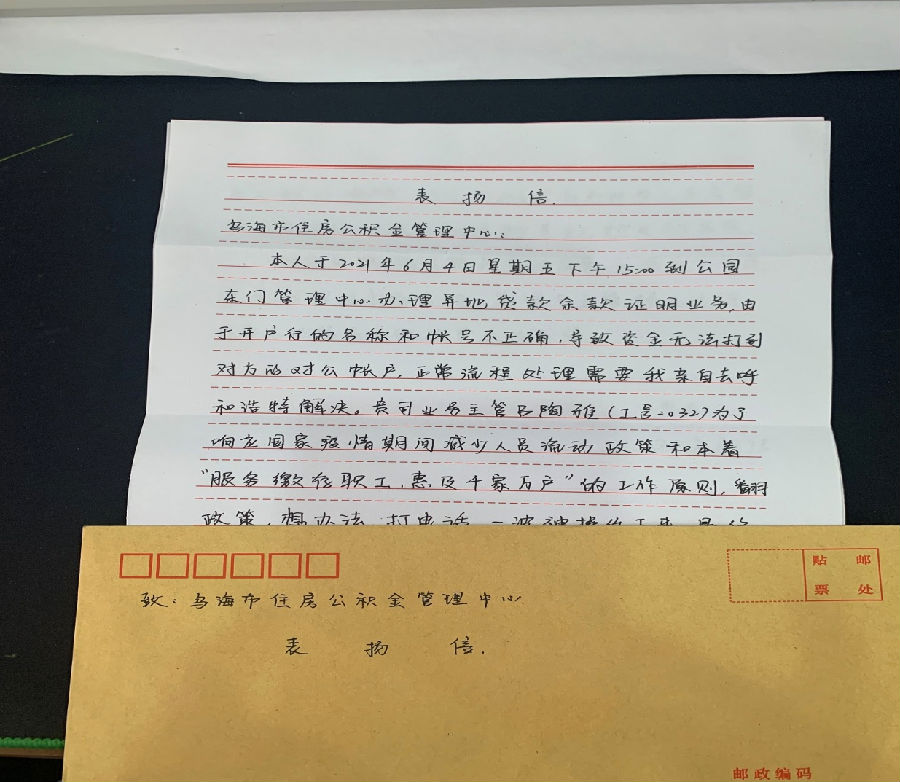 表扬信.
乌海市住房公积金管理中心:
本人于2021年6月4日星期五下午15:00到公园
东门管理中心办理异地贷款余款证明业务,由
于开户行的名称和帐号不正确,导致资金无法打到
对方的对公帐户,正常流程处理需要我亲自去呼
和浩特解决。贵司业务主管吕陶雅(工号2032)为了
响应国家疫情期间减少人员流动政策和本着
“服务缴存职工,惠及千家万户”的工作原则,翻
政策,想办法,打电话,一波
贴 邮
票 处
致:乌海市住房公积金管理中心
表扬信.
邮政编码